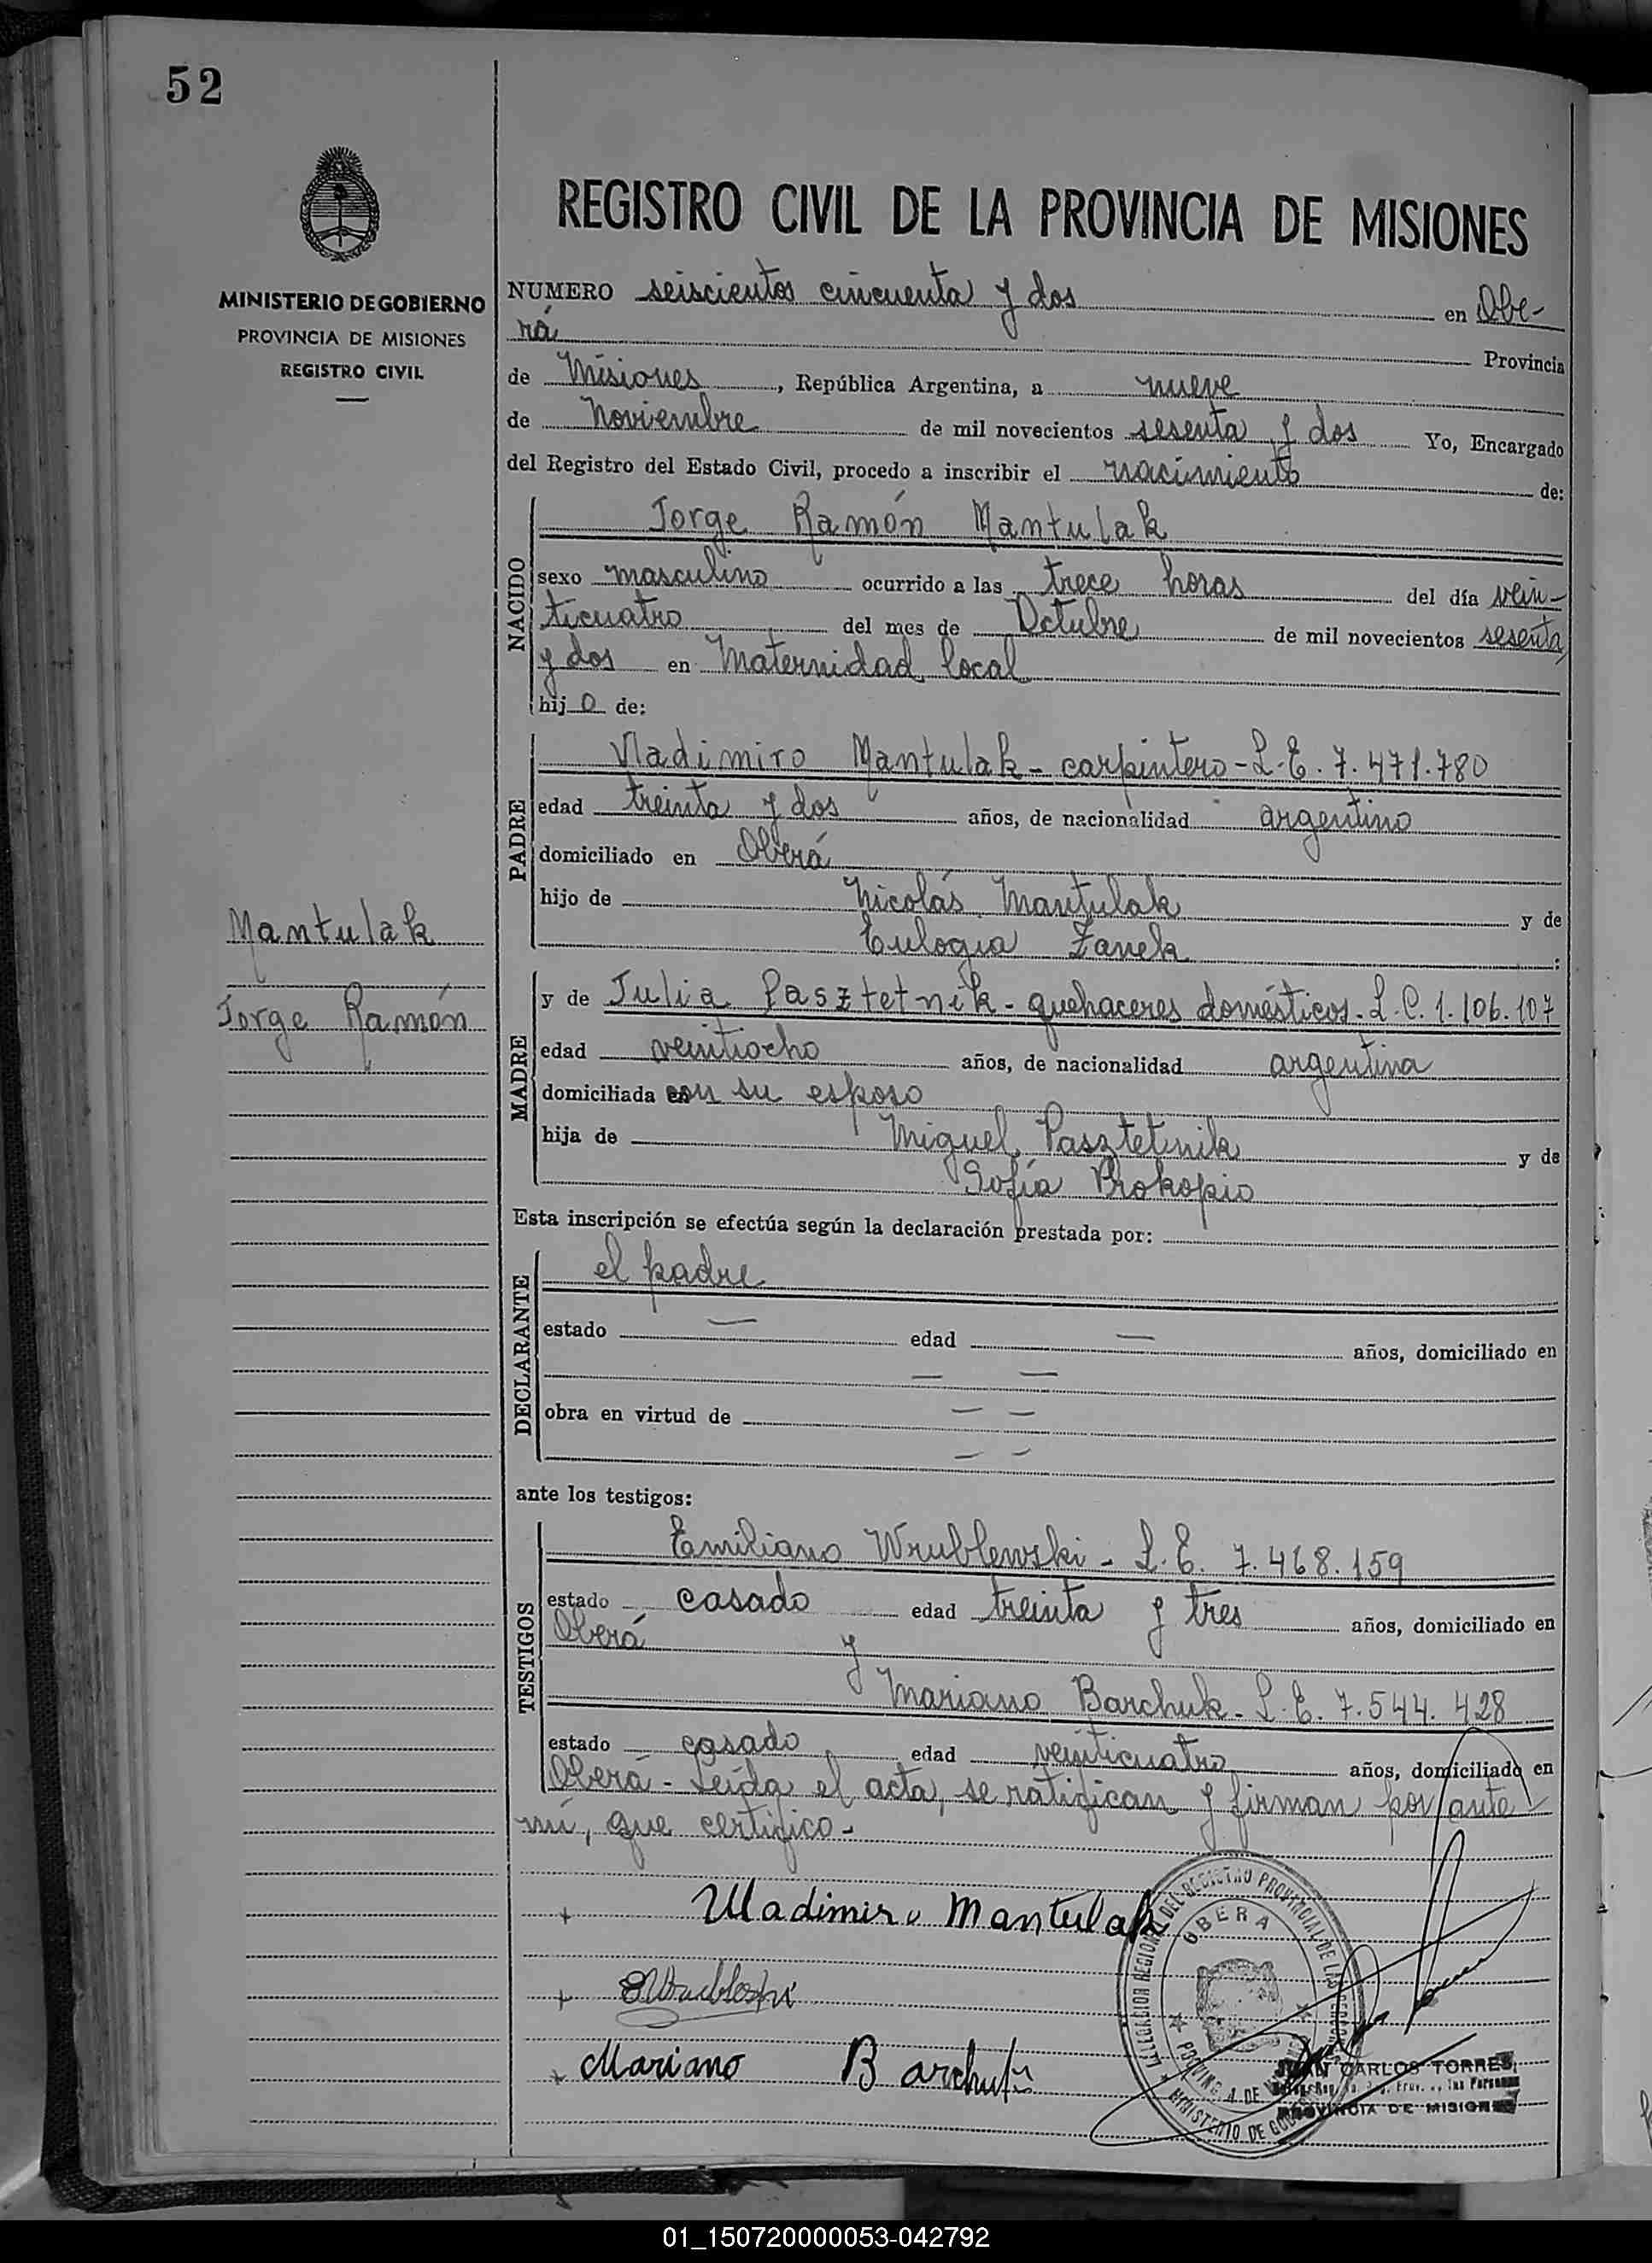 52
MINISTERIO DE GOBIERNO
PROVINCIA DE MISIONES
REGISTRO CIVIL
Mantulak
Jorge Ramón
REGISTRO CIVIL DE LA PROVINCIA DE MISIONES
NUMERO seiscientos cincuenta y dos en Obe-
rá Provincia
de Misiones, República Argentina, a nueve
de Noviembre de mil novecientos sesenta y dos Yo, Encargado
del Registro del Estado Civil, procedo a inscribir el nacimiento de:
NACIDO
Jorge Ramón Mantulak
sexo masculino ocurrido a las trece horas del día vein-
ticuatro del mes de Octubre de mil novecientos sesenta
y dos en Maternidad local
hijo de:
PADRE
Vladimiro Mantulak - carpintero - L.E. 7.471.780
edad treinta y dos años, de nacionalidad argentino
domiciliado en Oberá
hijo de Nicolás Mantulak y de
Eulogia Zanek;
MADRE
y de Julia Pasztetnik - quehaceres domésticos. L.C. 1.106.107
edad veintiocho años, de nacionalidad argentina
domiciliada con su esposo
hija de Miguel Pasztetnik y de
Sofía Prokopio
Esta inscripción se efectúa según la declaración prestada por:
DECLARANTE
el padre
estado — edad — años, domiciliado en
— —
obra en virtud de — —
— —
ante los testigos:
TESTIGOS
Emiliano Wrublewski - L.E. 7.468.159
estado casado edad treinta y tres años, domiciliado en
Oberá y
Mariano Barchuk - L.E. 7.544.428
estado casado edad veinticuatro años, domiciliado en
Oberá - Leída el acta, se ratifican y firman por ante
mí, que certifico -
+ Uladimiro Mantulak
+
+ Mariano Barchuk
OBERA
MINISTERIO DE
JUAN CARLOS TORRES
PROVINCIA DE MISIONES
01_150720000053-042792